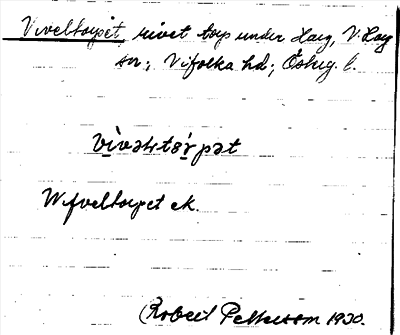 Viveltorpet, rivet torp under Harg, V. Harg
sn.; Vifolka hd; Östrg. l.
vìvəltór̥pət
Wifveltorpet ek.
Robert Pettersson 1930.